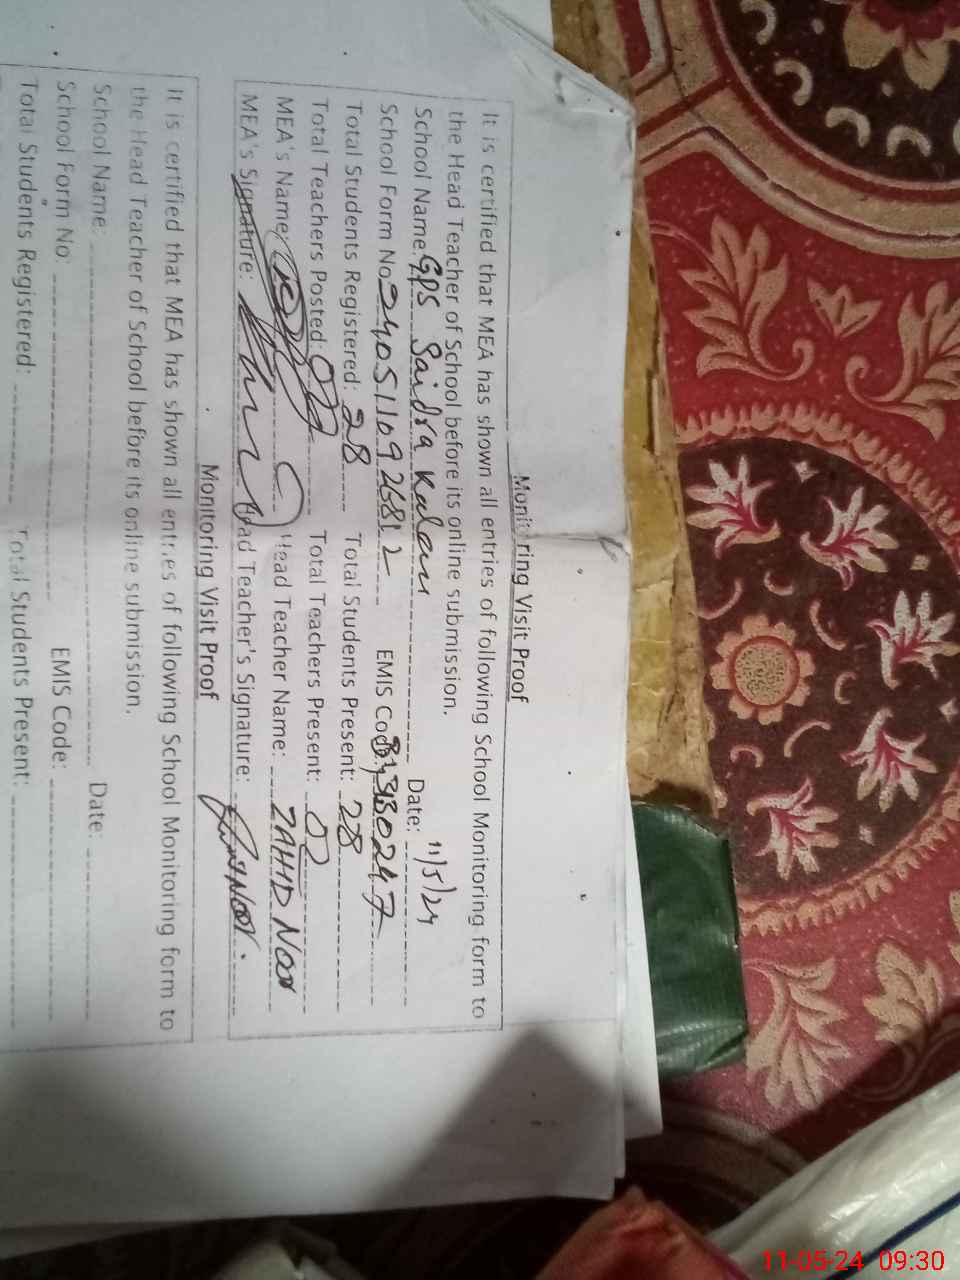 Monitoring Visit Proof
It is certified that MEA has shown all entries of following School Monitoring form to
the Head Teacher of School before its online submission.
School Name: GPS Saidra Kalan Date: 11/5/24
School Form No. EMIS Code:
Total Students Registered: 28 Total Students Present: 28
Total Teachers Posted: 02 Total Teachers Present: 02
MEA's Name: Head Teacher Name: ZAHID NOOR
MEA's Signature: Head Teacher's Signature:
Monitoring Visit Proof
It is certified that MEA has shown all entries of following School Monitoring form to
the Head Teacher of School before its online submission.
School Name: Date:
School Form No: EMIS Code:
Total Students Registered: Total Students Present:
11-05-24 09:30